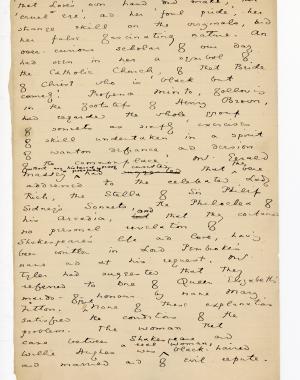 that Love's own hand did make, her
cruel eye, and her foul pride, her
strange skill on the virginals, and
her false fascinating nature. An
over-curious scholar of our day
had seen in her a symbol of
the Catholic Church, of that Bride
of Christ who is "black but
comely". Professor Minto, following
in the footsteps of Henry Brown,
had regarded the whole group
of sonnets as simply exercises
of skill undertaken in a spirit
of wanton defiance and derision
of the commonplace. Mr. Gerald
Massey suggested that they were
addressed to the celebrated Lady
Rich, the Stella of Sir Philip
Sidney's Sonnets, the Philoclea of
his Arcadia, and that they contained
no personal revelation of
Shakespeare's life and love, having
been written in Lord Pembroke's
name and at his request. Mr.
Tyler had suggested that they
referred to one of Queen Elizabeth's
maids-of-honour by name Mary
Fitton. But none of these explanations
satisfied the conditions of the
problem. The woman that
came between Shakespeare and
Willie Hughes was a real woman, black-haired
and married and of evil repute.